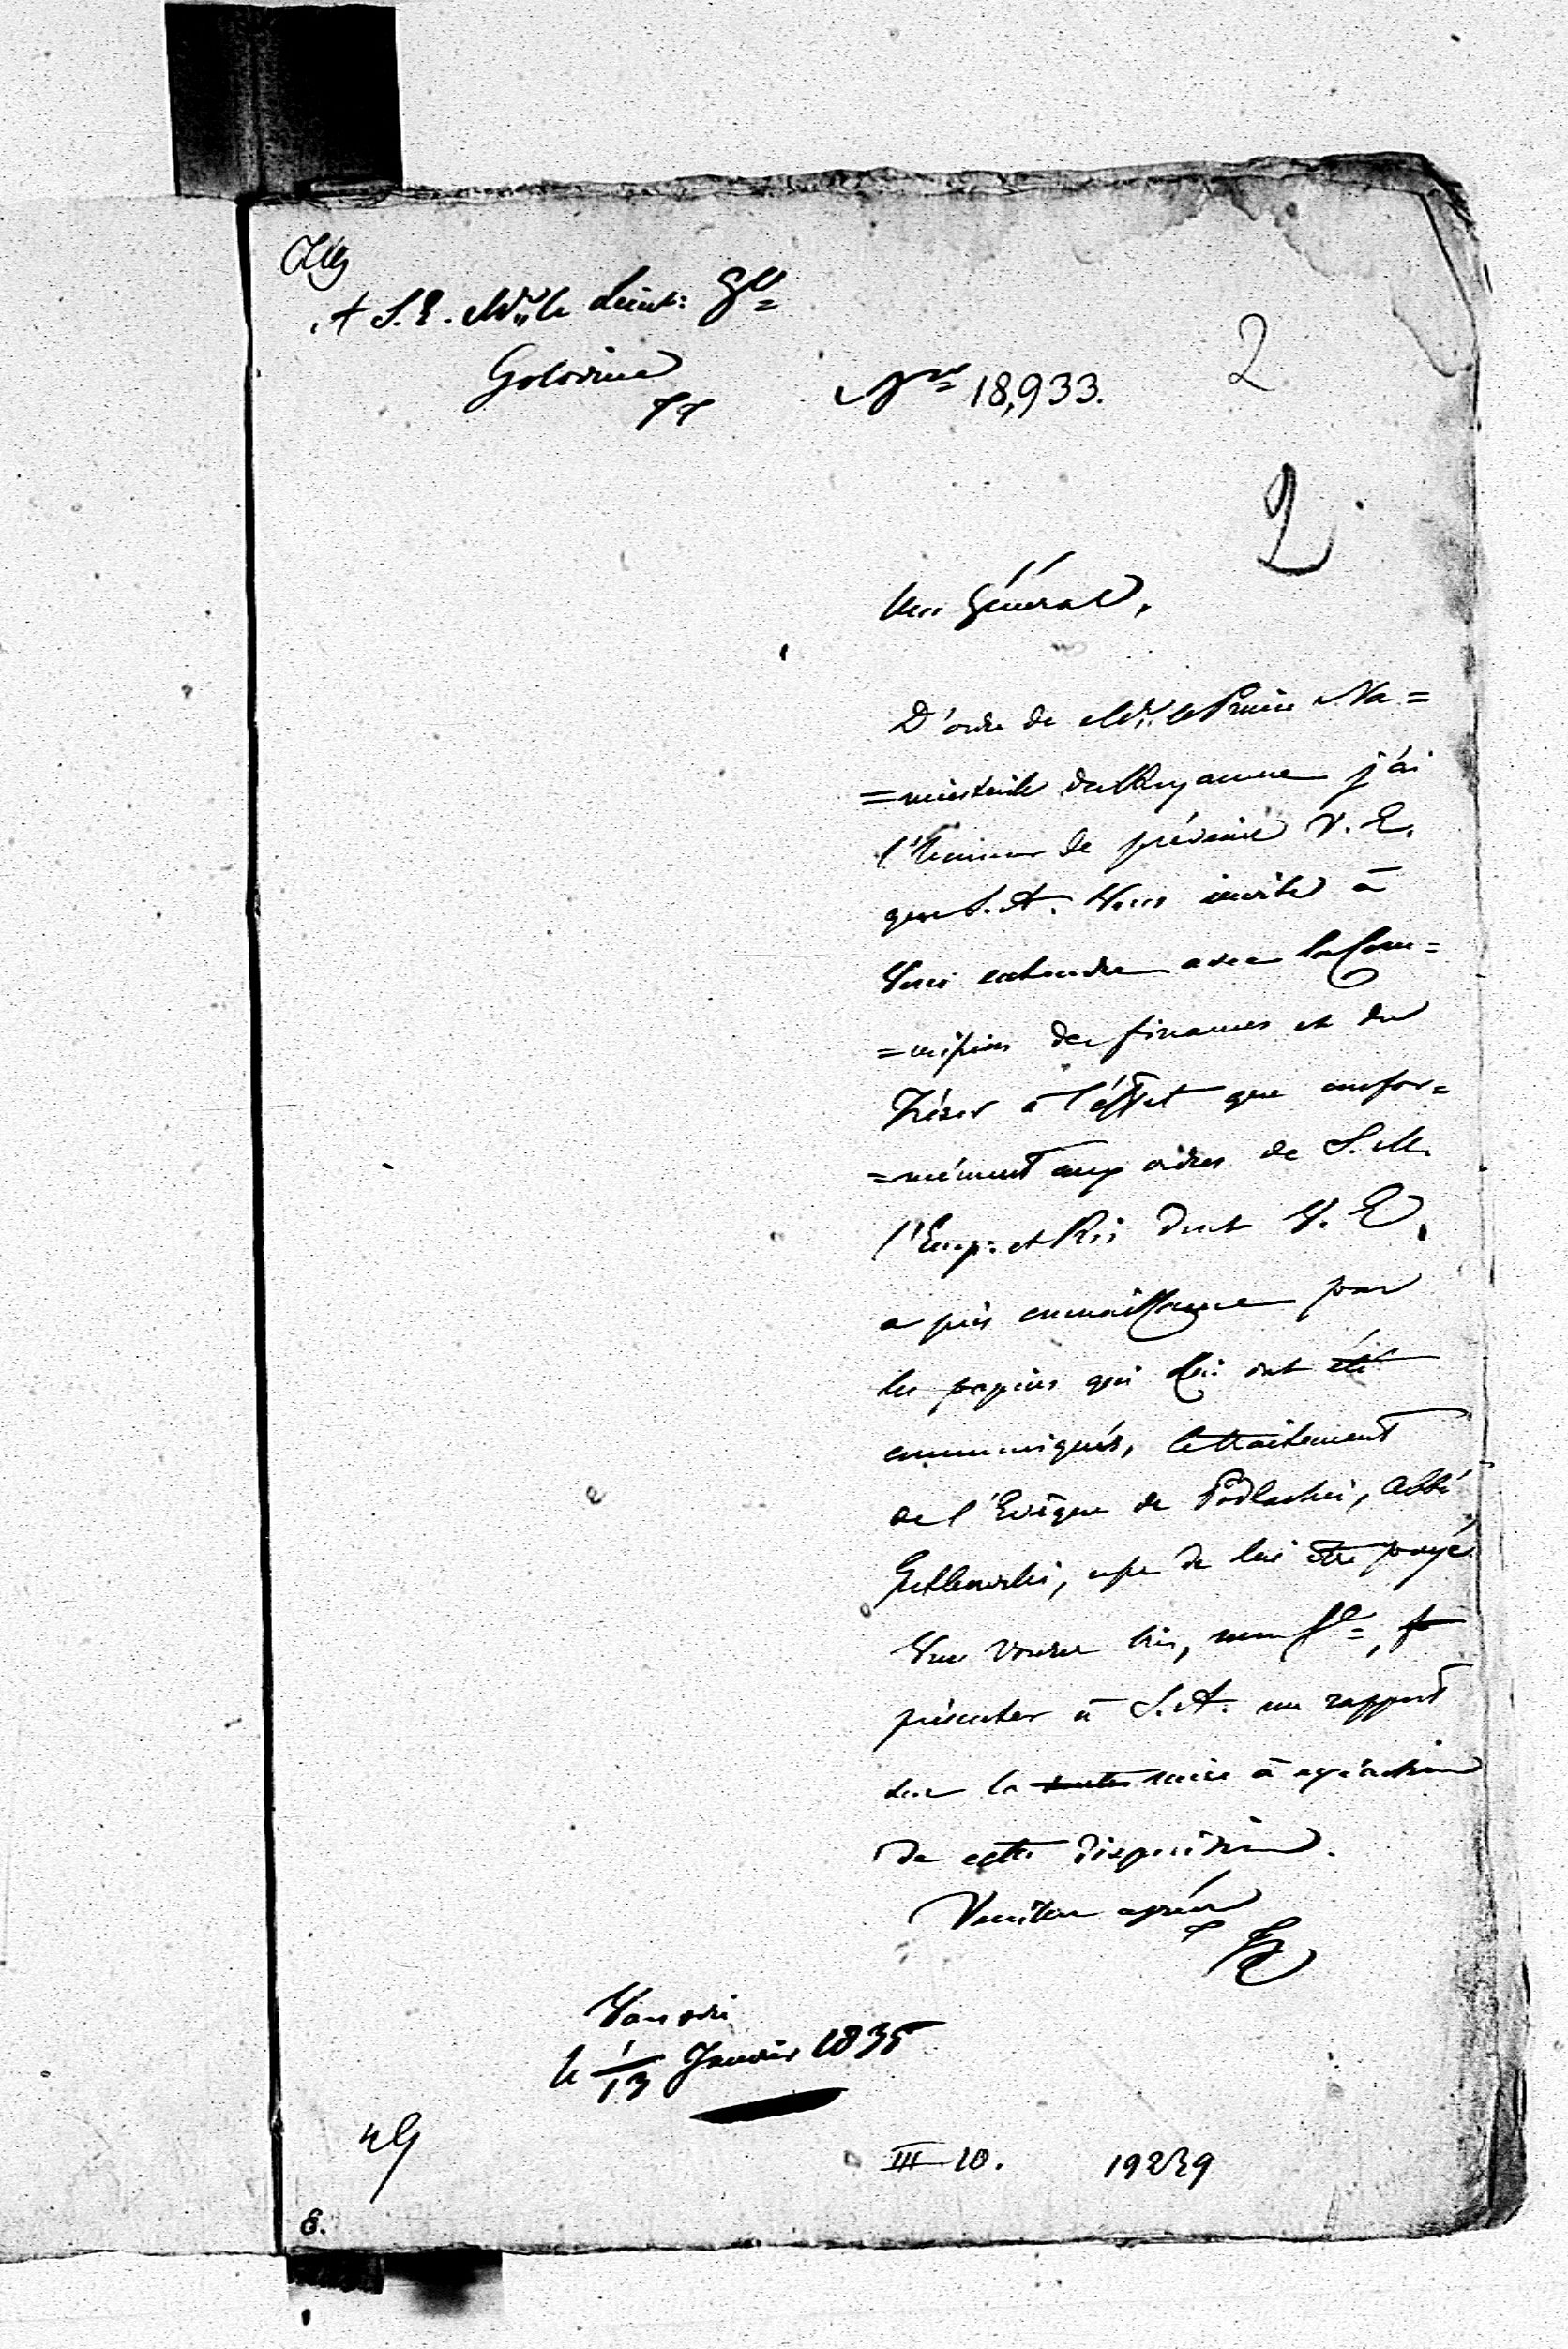 A S. E. Mr. le Lieut: Gl
Golovine
Nro 18,933.
2
2
Mon Général,
D'ordre de Mr. le Prince Na=
=miestnik du Royaume j'ai
l'honneur de prévenir V. E.
que S. A. Vous invite à
Vous entendre avec la Com=
=mission des finances et du
Trésor à l'éffet que confor=
=mément aux ordres de S. M.
l'Emp: et Roi dont V. E.
a pris connaissance par
les papiers qui lui ont été
communiqués, le traitement
de l'Evêque de Podlachie, Abbé
Gutkowski, cesse de lui être payé.
Vous voudrez bien, mon Gl,
présenter à S. A. un rapport
sur la mise à exécution
de cette disposition.
Veuillez agréer
Varsovie
le 1/13 Janvier 1835
III 10. 19239
8.